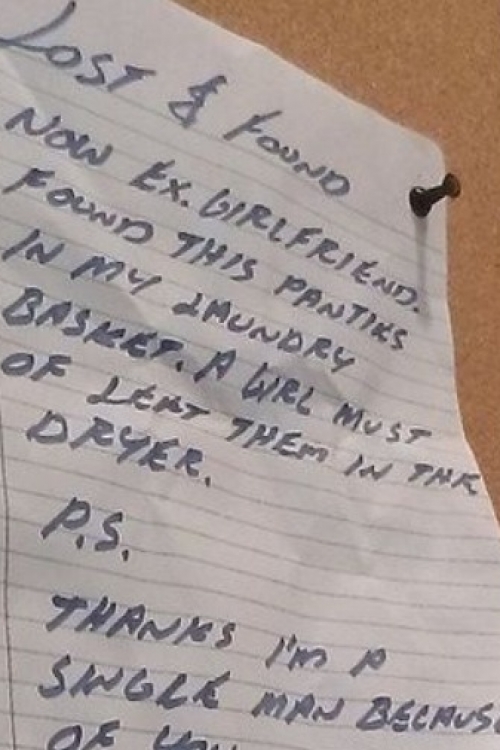 LOST & FOUND
NOW EX. GIRLFRIEND.
FOUND THIS PANTIES
IN MY LAUNDRY
BASKET. A GIRL MUST
OF LEFT THEM IN THE
DRYER.
P.S.
THANKS I'M A
SINGLE MAN BECAUSE
OF YOU